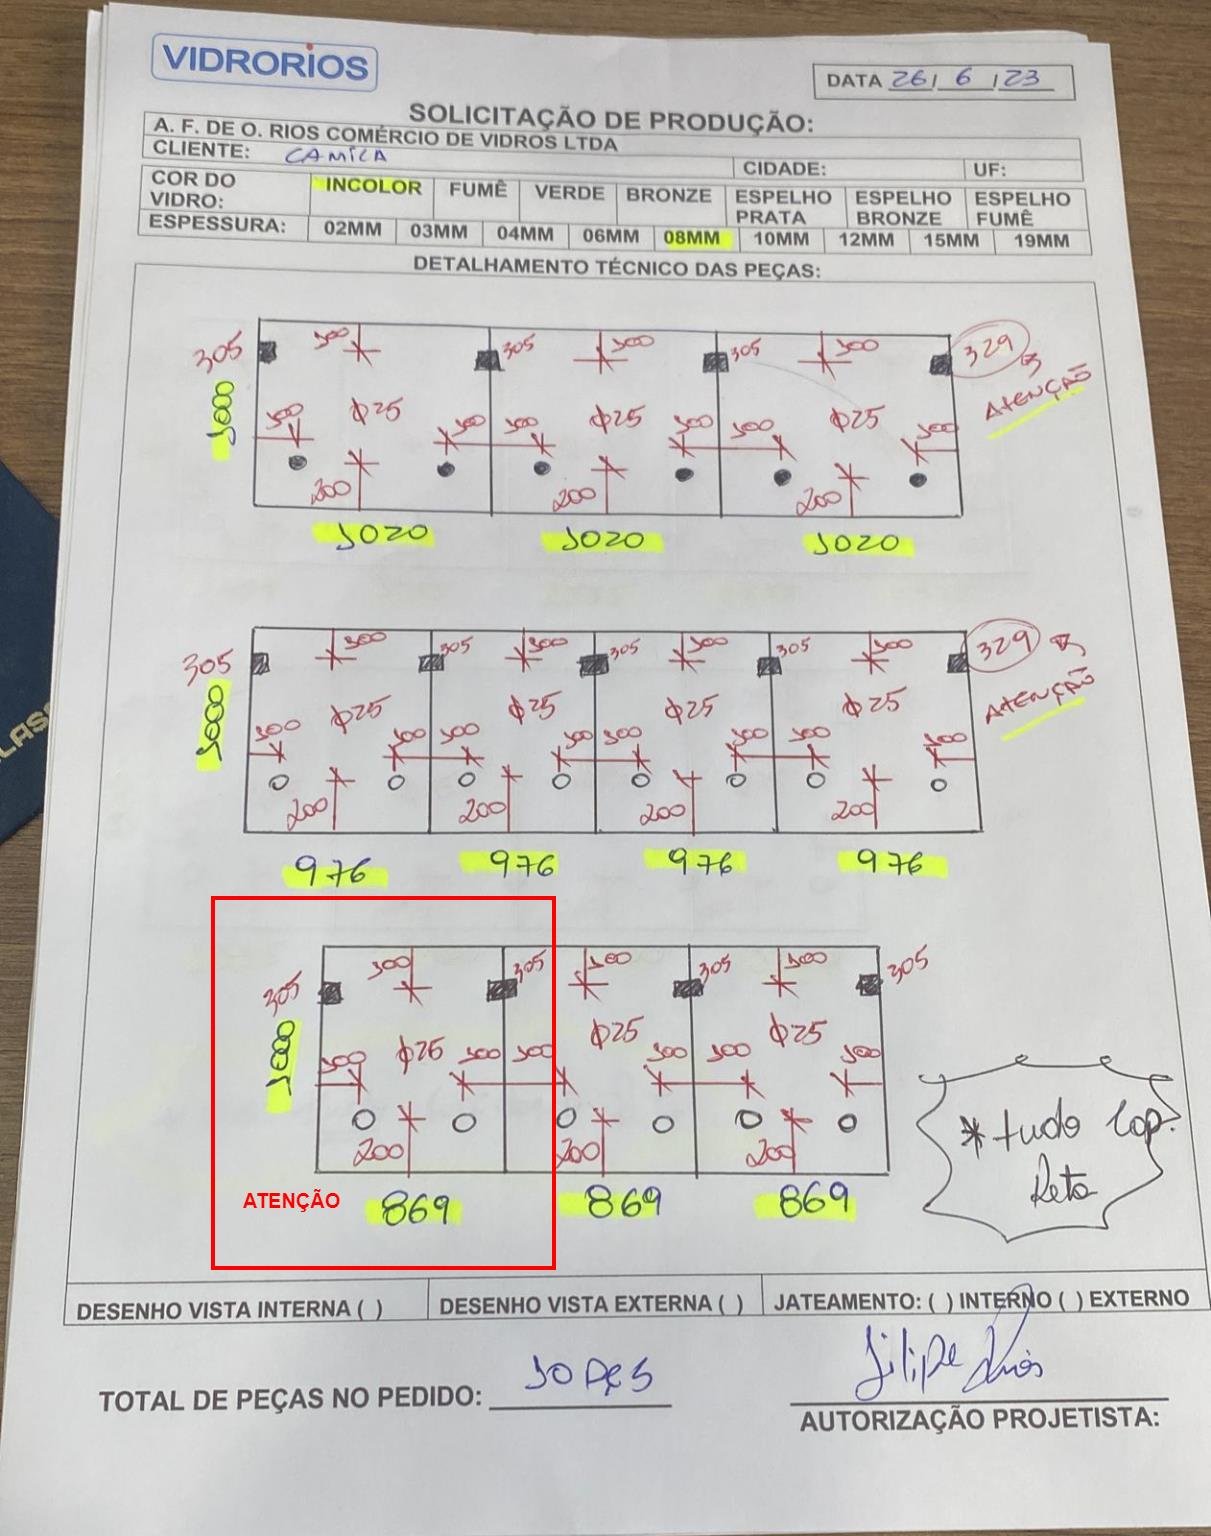 VIDRORIOS
DATA 26/ 6 /23
SOLICITAÇÃO DE PRODUÇÃO:
A. F. DE O. RIOS COMÉRCIO DE VIDROS LTDA
CLIENTE: CAMILA CIDADE: UF:
COR DO VIDRO: INCOLOR FUMÊ VERDE BRONZE ESPELHO PRATA ESPELHO BRONZE ESPELHO FUMÊ
ESPESSURA: 02MM 03MM 04MM 06MM 08MM 10MM 12MM 15MM 19MM
DETALHAMENTO TÉCNICO DAS PEÇAS:
305 100 305 100 305 100 329
ATENÇÃO
1000
100 Φ25 100 100 Φ25 100 100 Φ25 100
200 200 200
1020 1020 1020
305 100 305 100 305 100 305 100 329
ATENÇÃO
1000
Φ25 Φ25 Φ25 Φ25
100 100 100 100 100 100 100 100
200 200 200 200
976 976 976 976
305 100 305 100 305 100 305
1000
100 Φ25 100 100 Φ25 100 100 Φ25 100
200 200 200
ATENÇÃO 869 869 869
* tudo lap.
Reto
DESENHO VISTA INTERNA ( ) DESENHO VISTA EXTERNA ( ) JATEAMENTO: ( ) INTERNO ( ) EXTERNO
TOTAL DE PEÇAS NO PEDIDO: 10 PÇS
Filipe Rios
AUTORIZAÇÃO PROJETISTA: